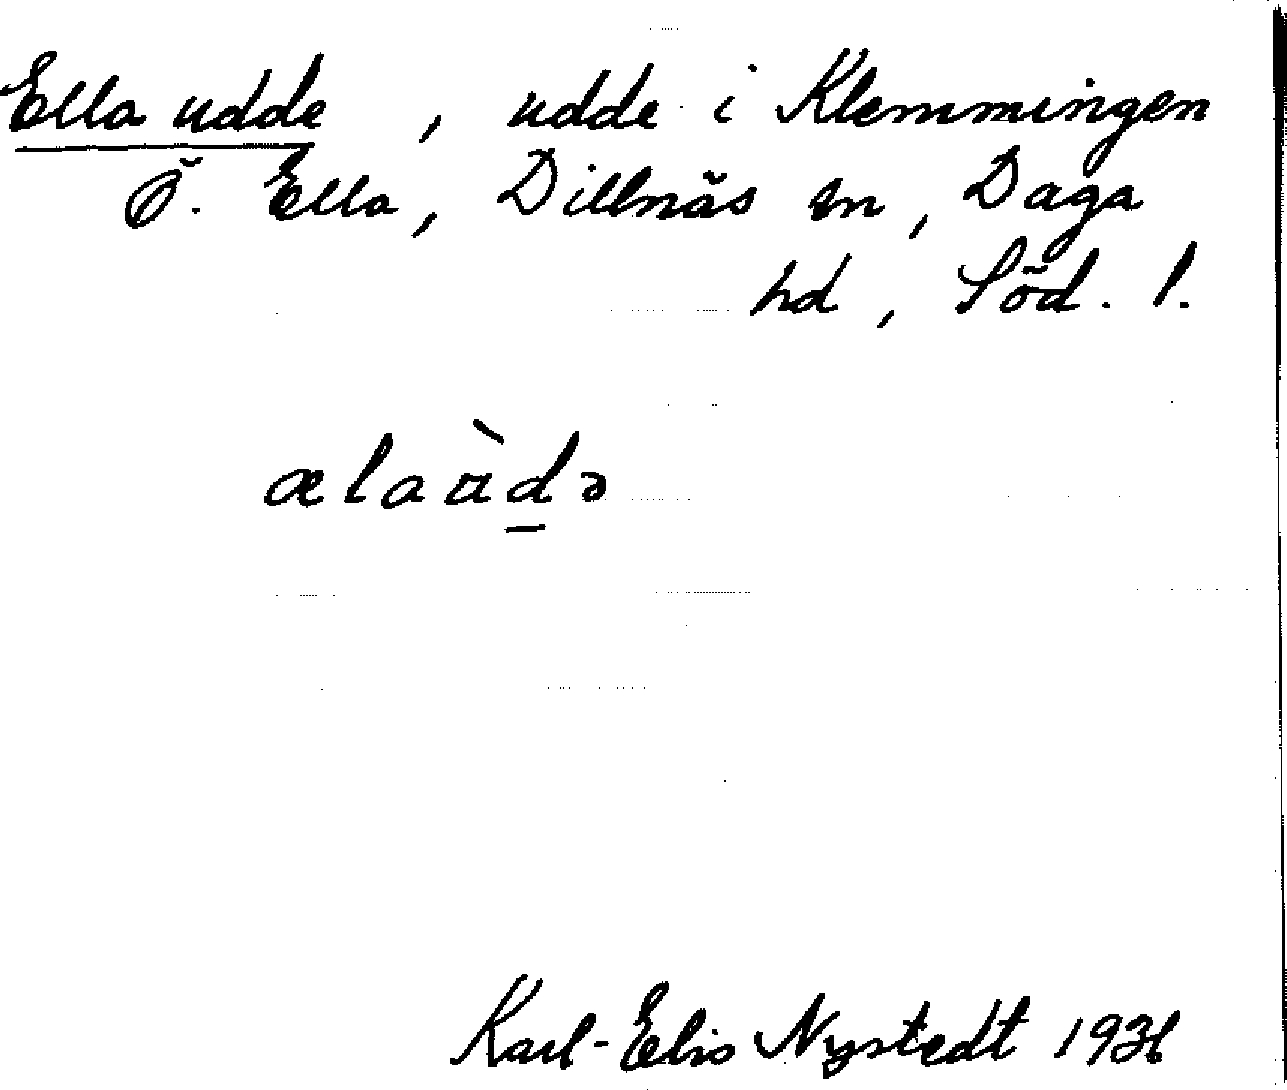 Ella udde, udde i Klemmingen
Ö. Ella, Dillnäs sn, Daga
hd, Söd. l.
ælaùdə
Karl-Elis Nystedt 1936